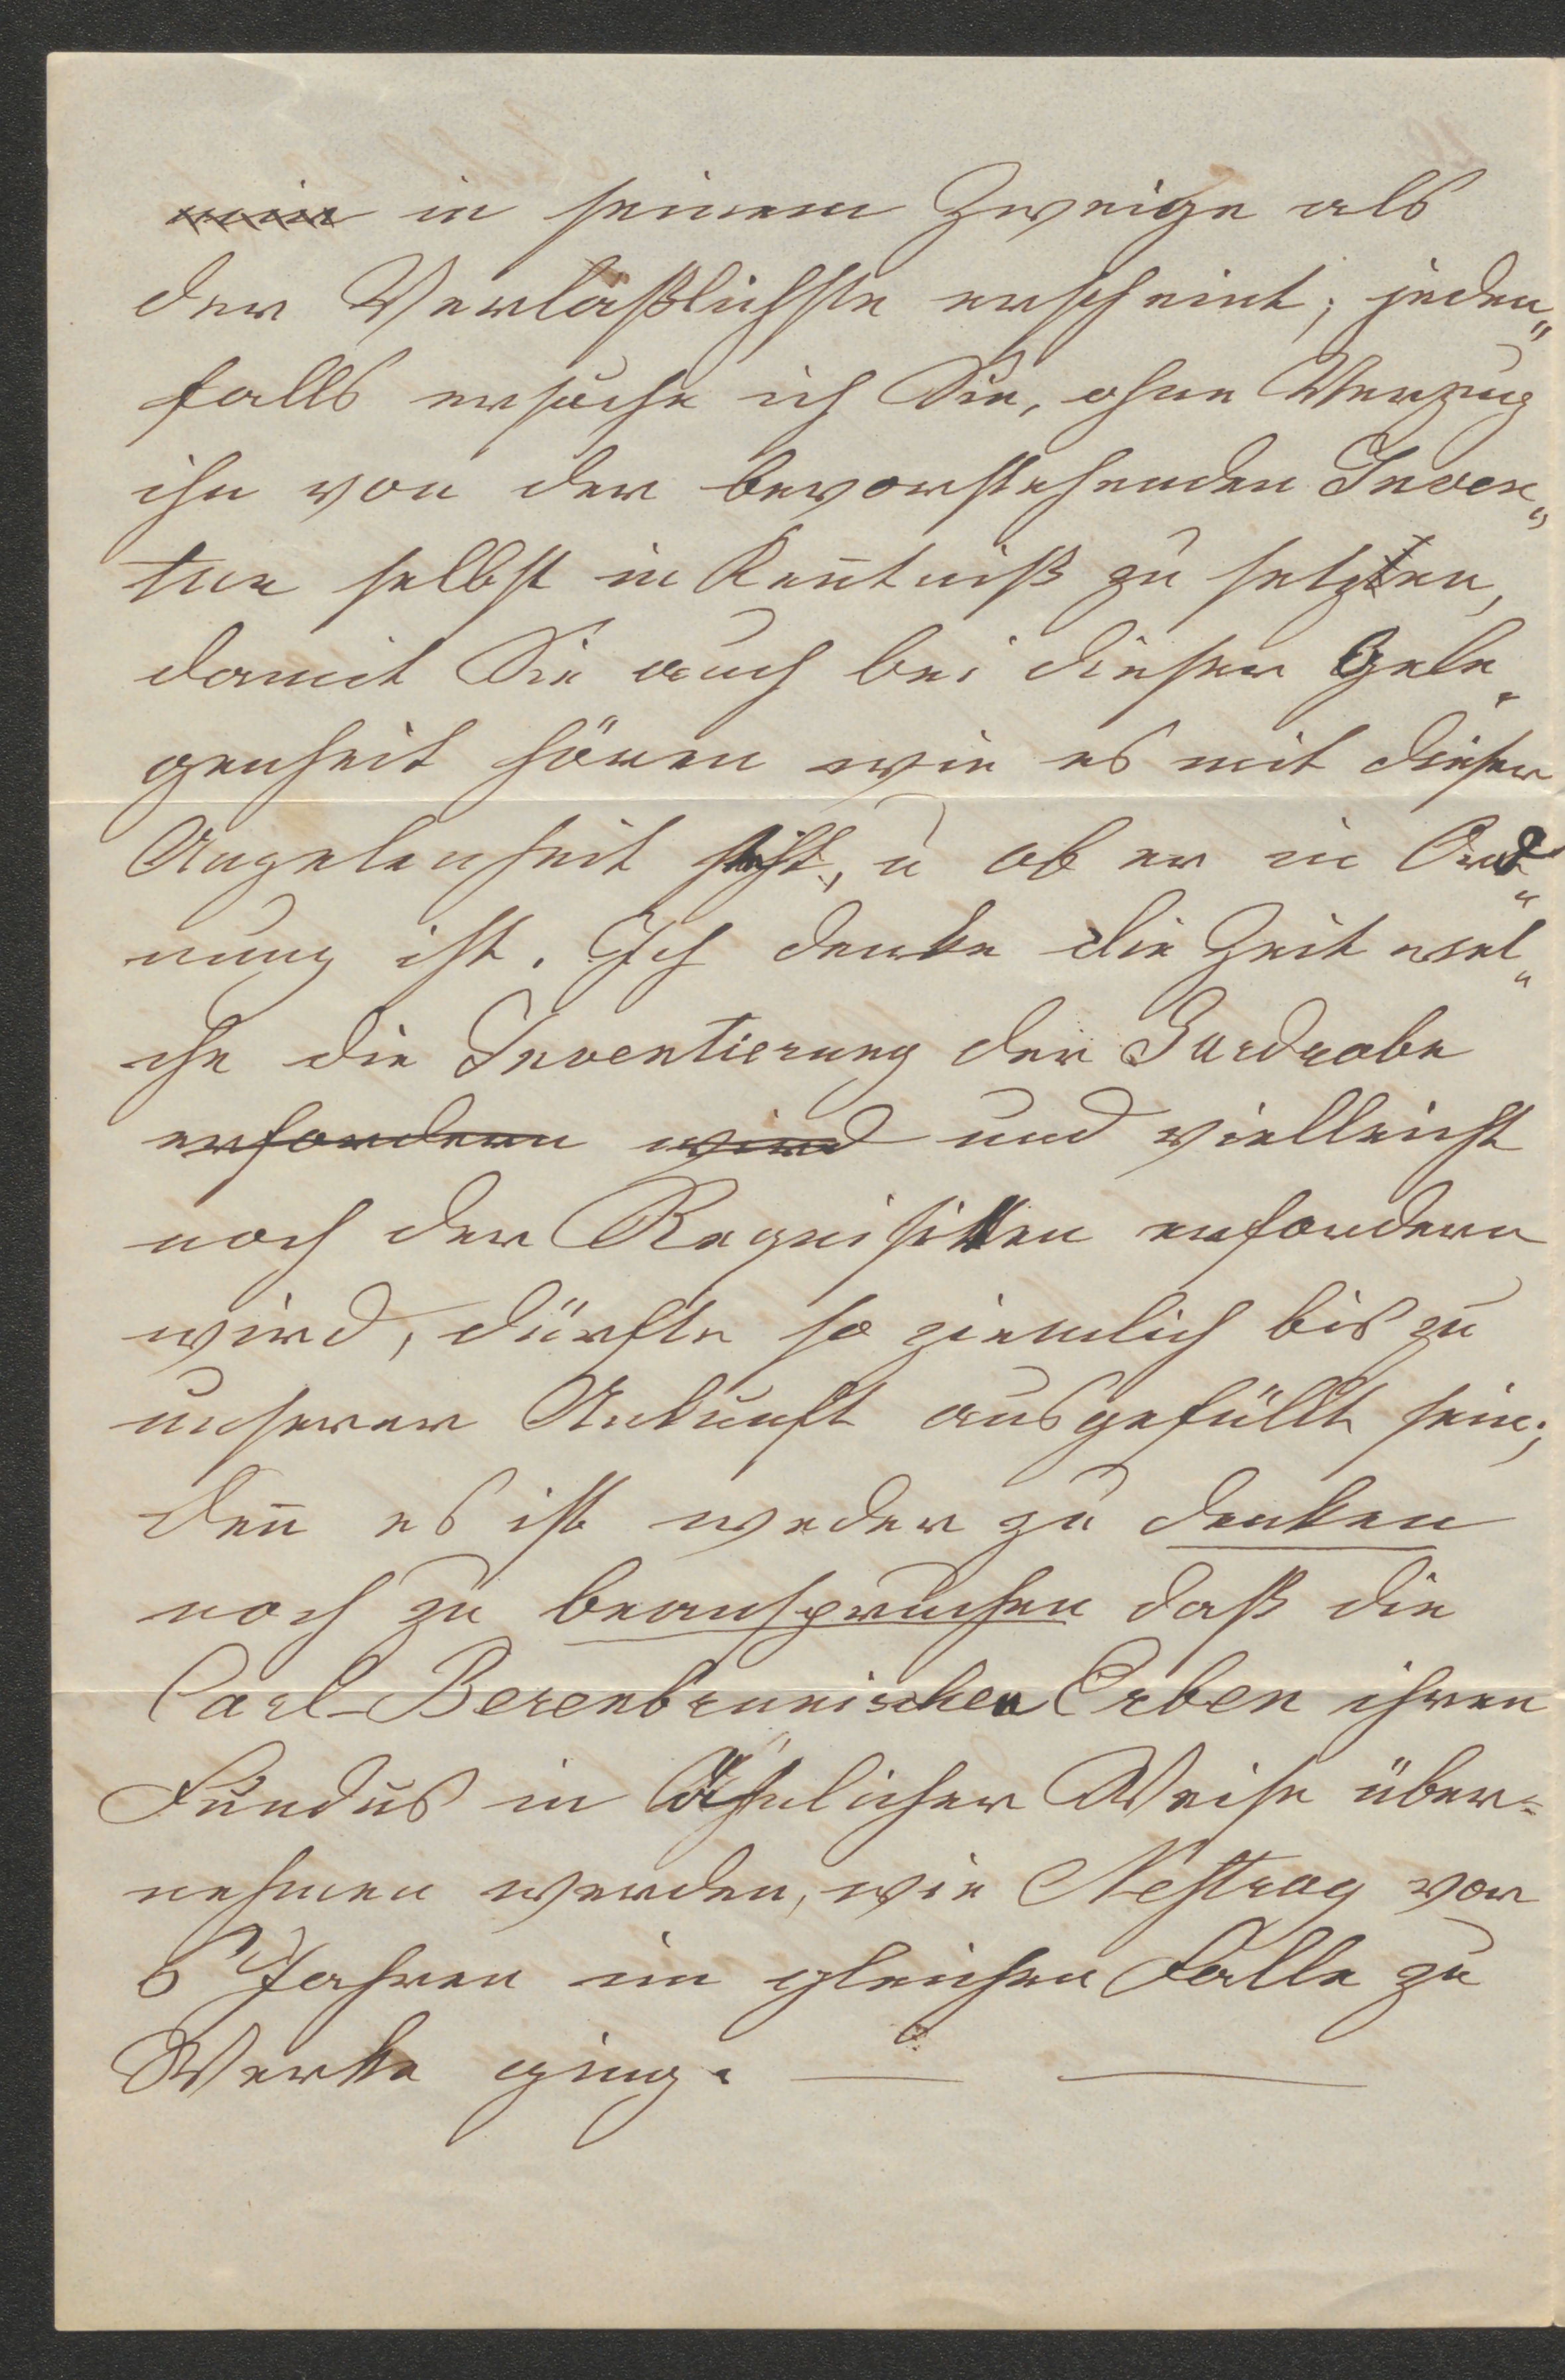 mir in seinem Zweige als
der Verläßlichste erscheint; jeden„
falls ersuche ich Sie, ohne Verzug
ihn von der bevorstehenden Inven„
tur selbst in Ken̄tniß zu setzten,
damit Sie auch bei dieser Gele„
genheit hören wie es mit dieser
Angelenheit steht, u ob er in Ord„
nung ist. Ich denke die Zeit wel„
che die Inventierung der Gardrobe
erfordern wird und vielleicht
noch der Requisitten erfordern
wird, dürfte so ziemlich bis zu
unserer Ankunft ausgefüllt sein;
den̄ es ist weder zu denken
noch zu beanspruchen daß die
Carl-Berenbrunischen Erben ihren
Fundus in Ähnlicher Weise über=
nehmen werden, wie Nestroy vor
6 Jahren im gleichen Falle zu
Werke ging. — —